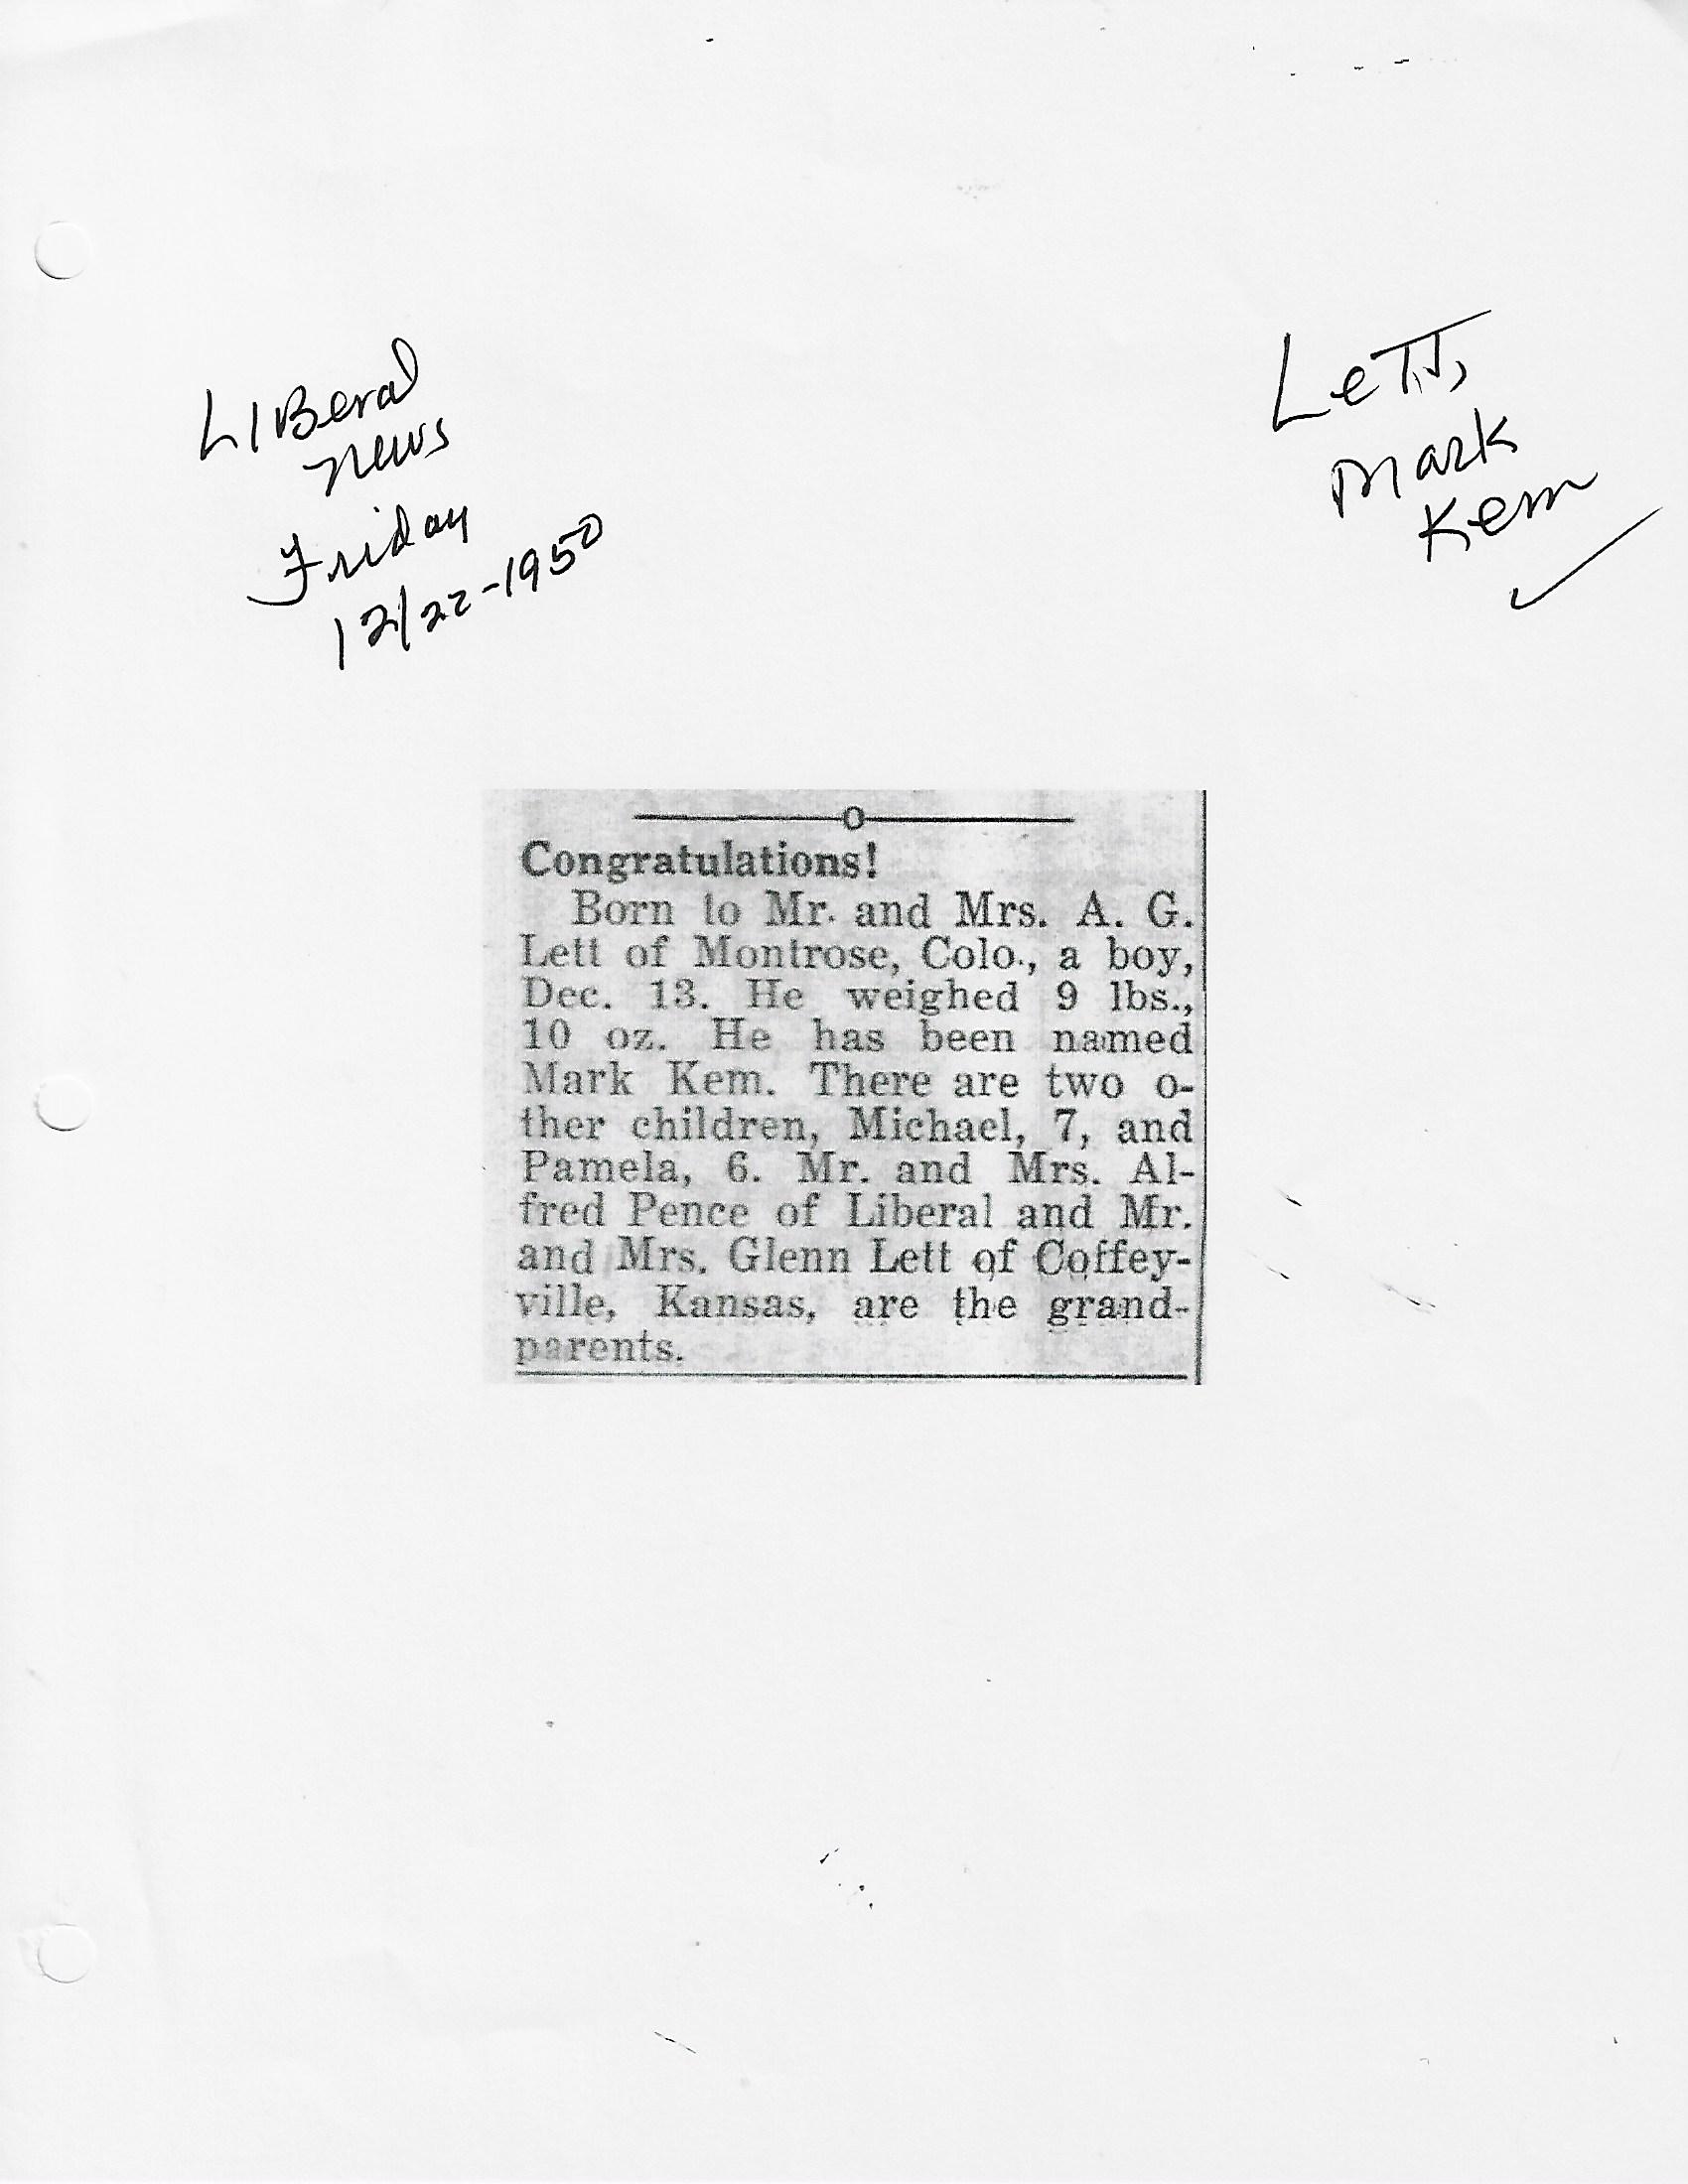 LIBeral
News
Friday
12/22-1950
Lett,
Mark
Kem
Congratulations!
Born to Mr. and Mrs. A. G.
Lett of Montrose, Colo., a boy,
Dec. 13. He weighed 9 lbs.,
10 oz. He has been named
Mark Kem. There are two o-
ther children, Michael, 7, and
Pamela, 6. Mr. and Mrs. Al-
fred Pence of Liberal and Mr.
and Mrs. Glenn Lett of Coffey-
ville, Kansas, are the grand-
parents.